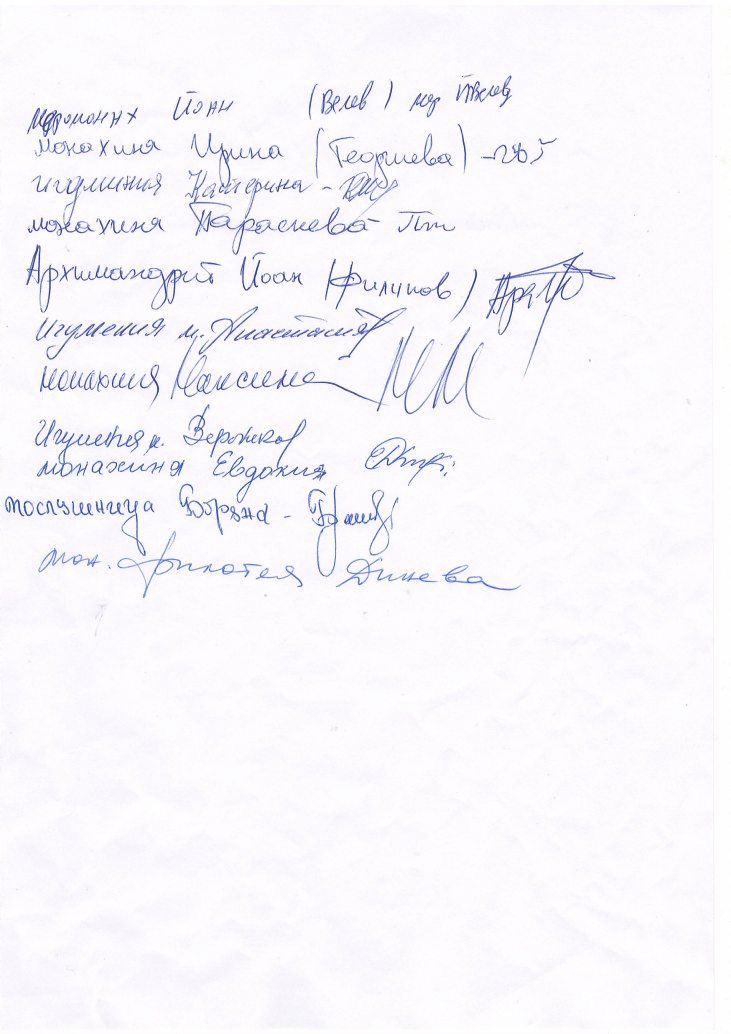 йеромонах Йоан (Велев)
монахиня Ирина (Георгиева) -
игумения Катерина -
монахиня Параскева
Архимандрит Йоан (Филипов)
Игумения м. Анастасия
монахиня Максима
Игумения м.
монахиня Евдокия
послушница Боряна -
мон. Филотея Динева